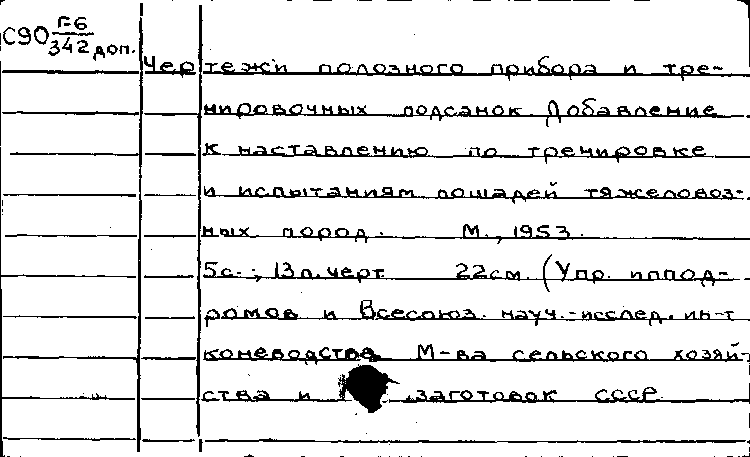 С90 Г-6
342 доп.
Чертежи полозного прибора и тре-
нировочных подсанок. Добавление
к наставлению по тренировке
и испытаниям лошадей тяжеловоз-
ных пород. М., 1953.
5с.; 13л.черт 22см. (Упр. иппод-
ромов и Всесоюз. науч.-исслед. ин-т
коневодства М-ва сельского хозяй-
ства и заготовок СССР